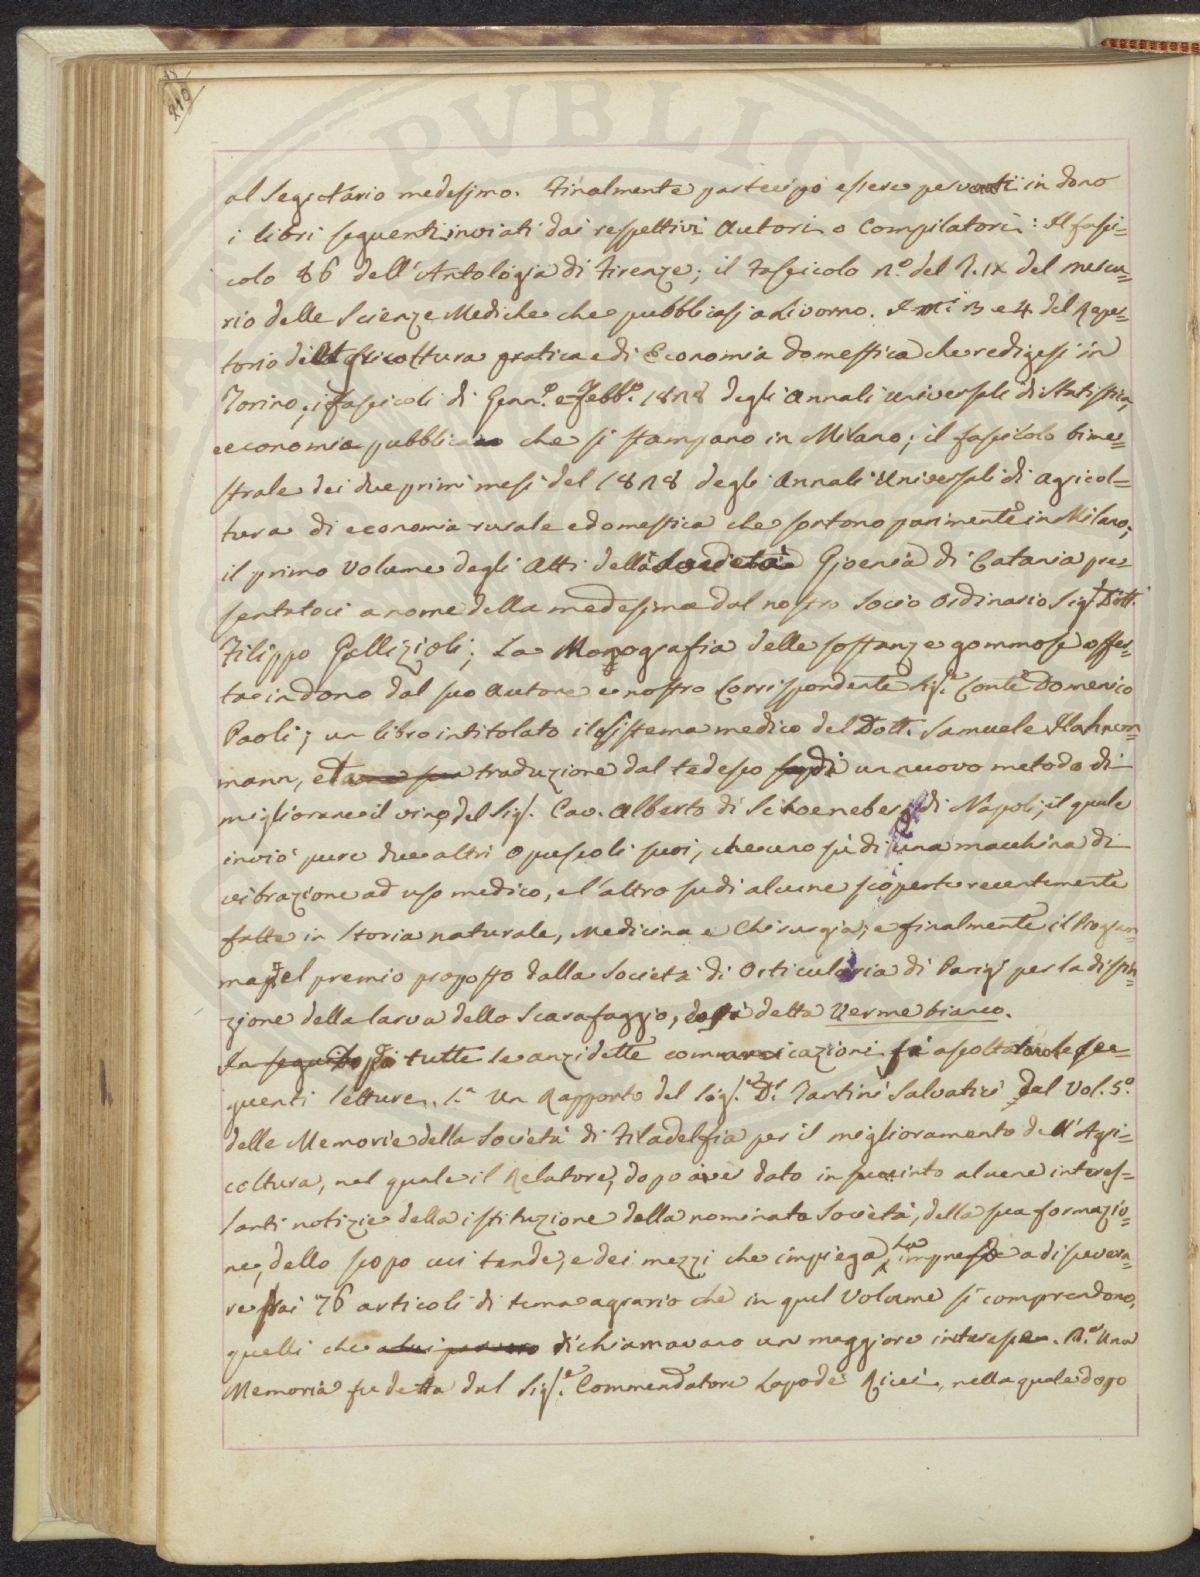 210
al Segretario medesimo. Finalmente partecipò essere pervenuti in dono
i libri seguenti inviati dai respettivi Autori o Compilatori: Il fasci=
colo 86 dell'Antologia di Firenze; il Fascicolo 2.º del T. IX del mercu=
rio delle Scienze Mediche che pubblicasi a Livorno. I n.i 3 e 4 del Reper=
torio di Agricoltura pratica e di Economia domestica che redigesi in
Torino; i fascicoli di Genn.º e Febb.º 1828 degli Annali universali di Statistica,
economia pubblica che si stampano in Milano; il fascicolo bime=
strale dei due primi mesi del 1828 degli Annali Universali di agricol=
tura di economia rurale e domestica che sortono parimente in Milano;
il primo Volume degli Atti della Società Gioenia di Catania pre
sentatoci a nome della medesima dal nostro Socio Ordinario Sig.r Dott.
Filippo Gallizioli; La Monografia delle sostanze gommose offer=
ta in dono dal suo Autore e nostro Corrispondente Sig.e Conte Domenico
Paoli; un libro intitolato il sistema medico del Dott. Samuele Hahne=
mann, e traduzione dal tedesco di un nuovo metodo di
migliorare il vino, del Sig. Cav. Alberto di Schoeneberg di Napoli; il quale
inviò pure due altri Opuscoli suoi, che uno su di una macchina di
vibrazione ad uso medico, e l'altro su di alcune scoperte recentemente
fatte in Storia naturale, Medicina e Chirurgia; e finalmente il Program=
ma del premio proposto dalla Società di Orticultura di Parigi per la distru=
zione della larva dello Scarafaggio, detta Verme bianco.
In seguito di tutte le anzidette comunicazioni fù ascoltato le se=
guenti letture. 1.a Un Rapporto del Sig.e D.r Tartini Salvatici dal Vol. 5.º
delle Memorie della Società di Filadelfia per il miglioramento dell'Agri=
coltura, nel quale il Relatore, dopo aver dato in succinto alcune interes=
santi notizie della istituzione della nominata Società, della sua formazio=
ne, dello scopo cui tende, e dei mezzi che impiega, ha impreso a discevera=
re frai 76 articoli di tema agrario che in quel Volume si comprendono,
quelli che richiamavano un maggiore interesse. 2.º Una
Memoria fu detta dal Sig.e Commendatore Lapo de' Ricci, nella quale dopo